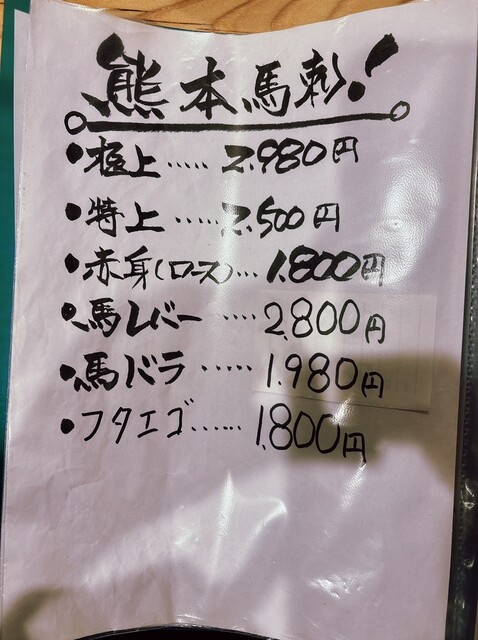 熊本馬刺!
・極上‥‥‥2.980円
・特上‥‥‥2.500円
・赤身(ロース)…1.800円
・馬レバー‥‥2.800円
・馬バラ‥‥‥1.980円
・フタエゴ‥‥‥1.800円